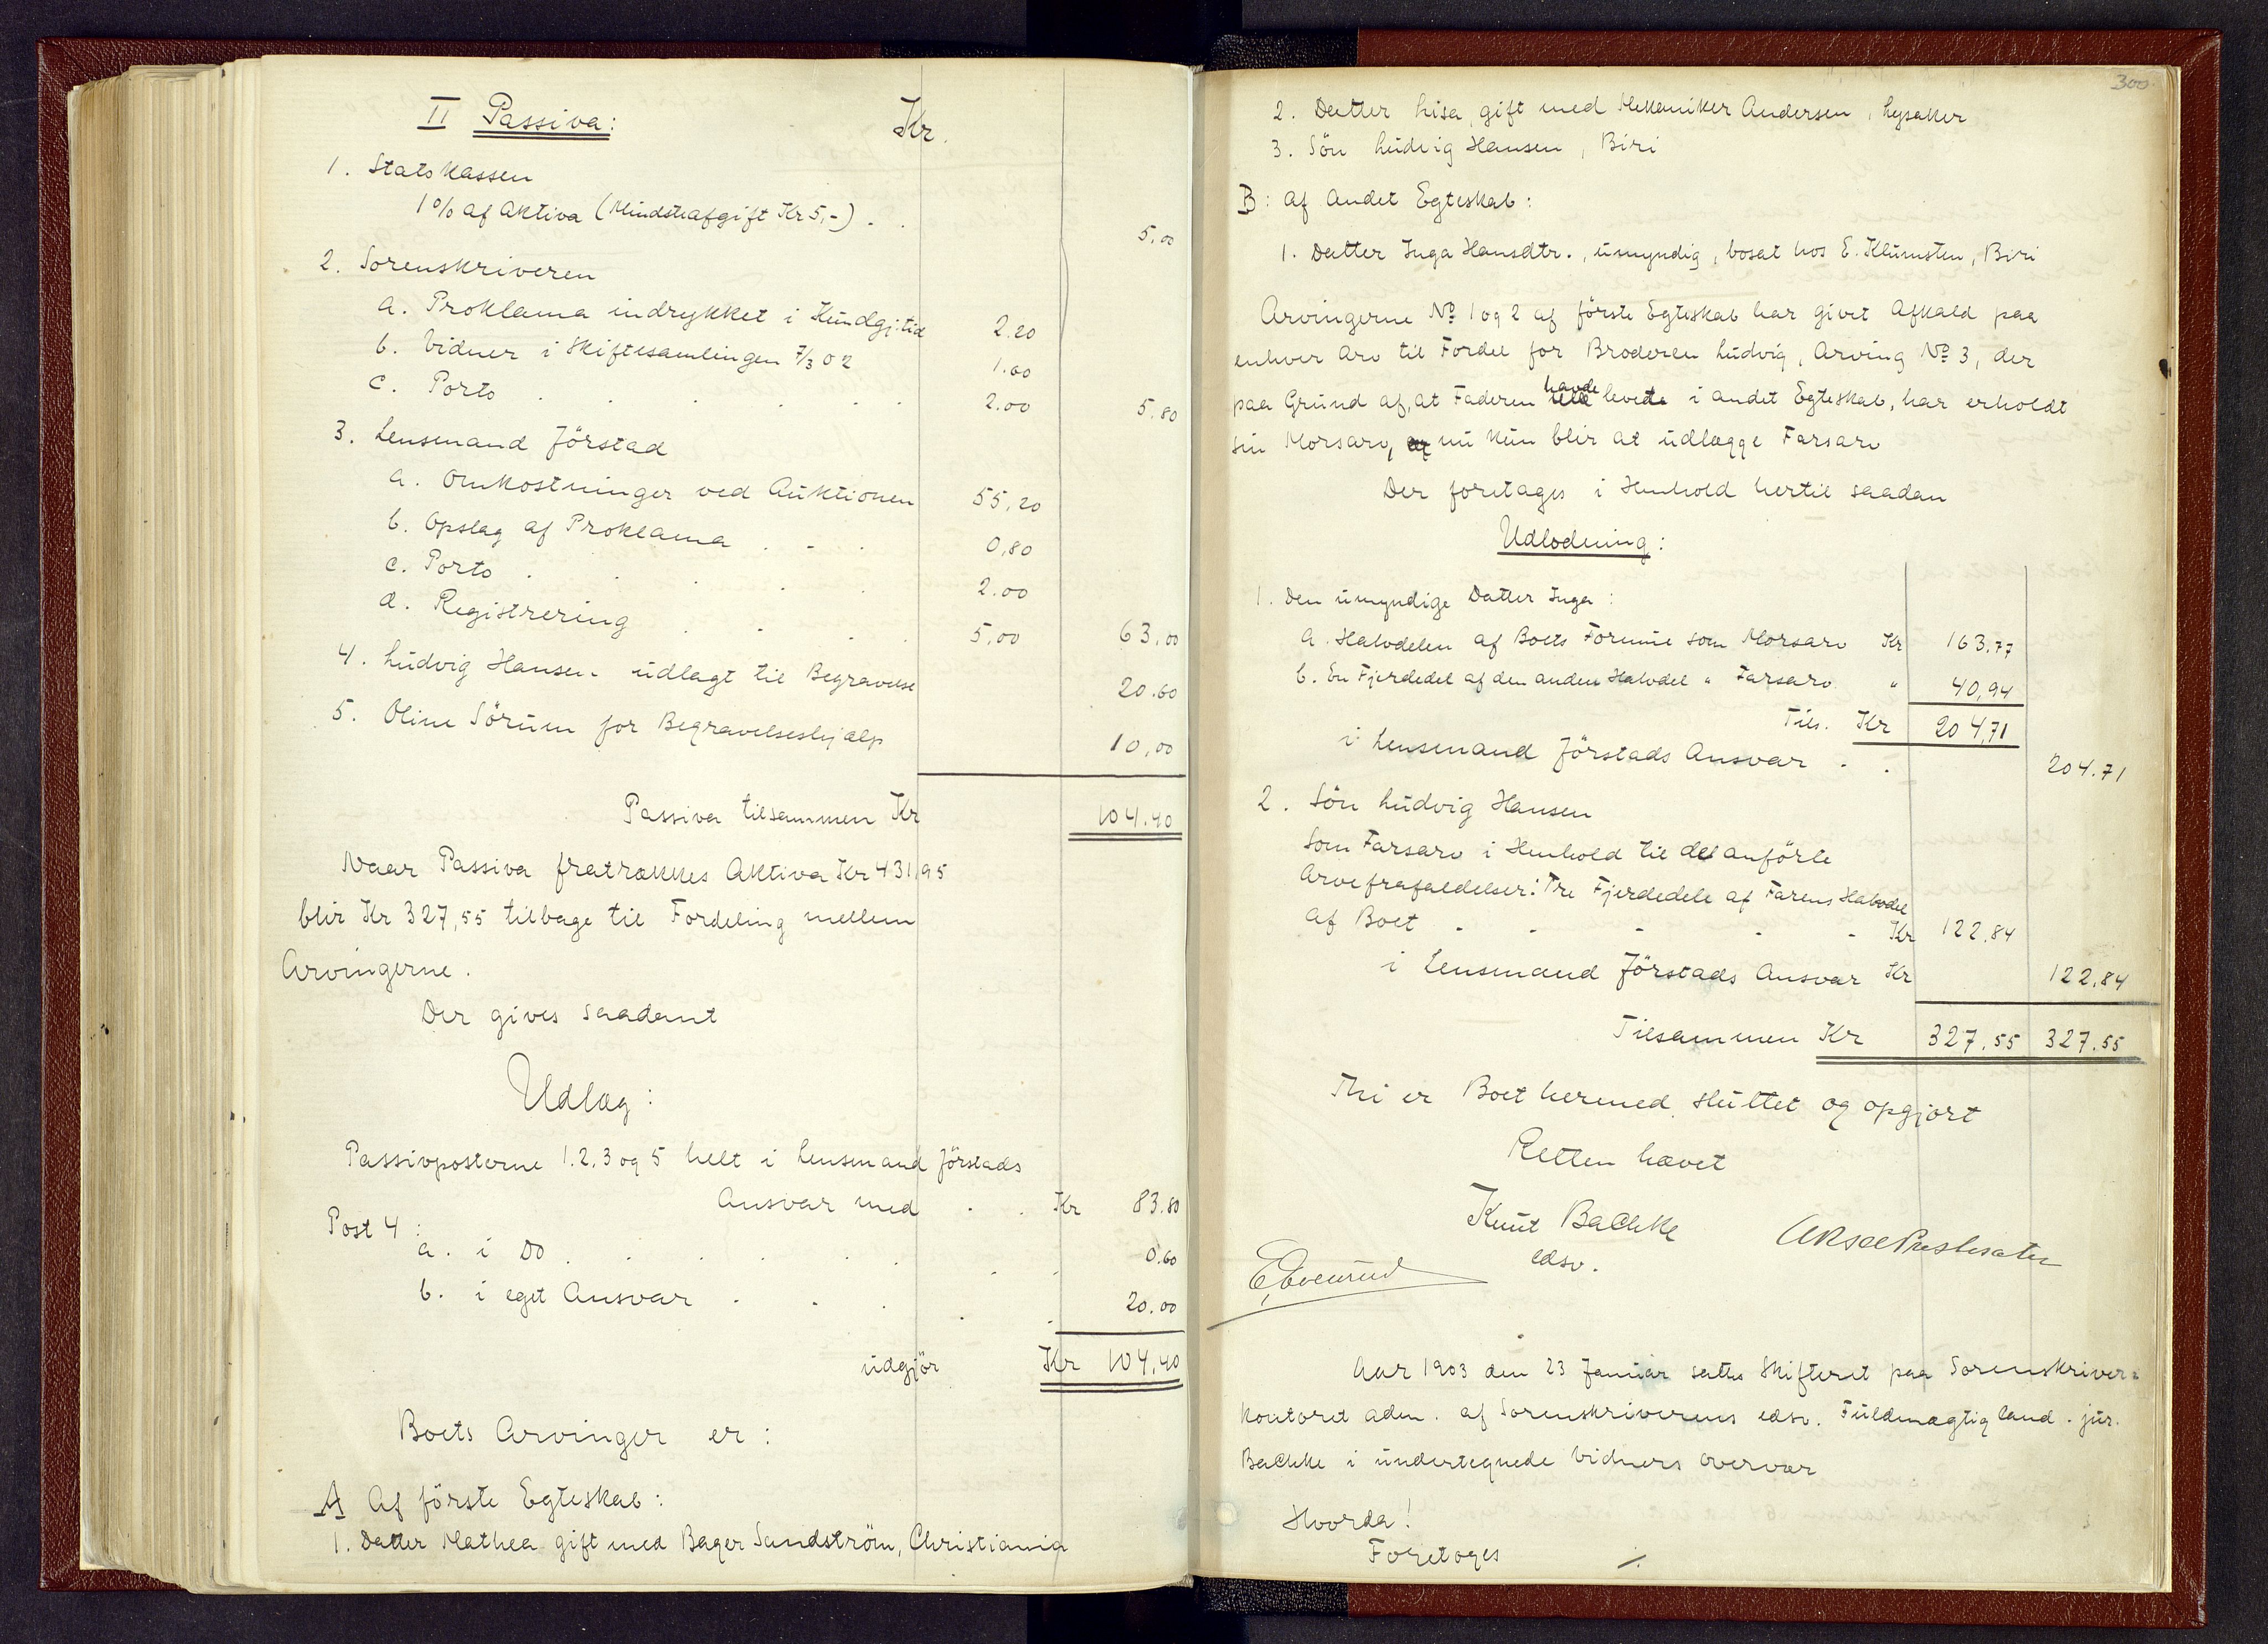 II Passiva: Kr.
1. Statskassen
1% af Aktiva (Mindsteafgift Kr 5,-) . . 5,00
2. Sorenskriveren
a. Proklama indrykket i Kundgj.tid 2.20
b. Vidner i Skiftesamlingen 7/3 02 1.60
c. Porto . . . . . 2.00 5,80
3. Lensmand Jörstad
a. Omkostninger ved Auktionen 55,20
b. Opslag af Proklama . - . 0,80
c. Porto . . . . . 2.00
d. Registrering . . . . 5,00 63,00
4. Ludvig Hansen - udlagt til Begravelse 20.60
5. Oline Sörum for Begravelseshjælp 10,00
Passiva tilsammen Kr 104.40
Naar Passiva fratrækkes Aktiva Kr 431,95
blir Kr 327,55 tilbage til Fordeling mellem
Arvingerne.
Der gives saadant
Udlæg:
Passivposterne 1.2.3 og 5 helt i Lensmand Jörstads
Ansvar med . . Kr 83.80
Post 4:
a. i Do . . . . . . . 0.60
b. i eget Ansvar - . . . . 20.00
udgjör Kr 104,40
Boets Arvinger er:
A Af förste Egteskab:
1. Datter Mathea gift med Bager Sundström, Christiania
300
2. Datter Lisa, gift med Mekaniker Andersen, Lysaker
3. Sön Ludvig Hansen, Biri
B: Af Andet Egteskab:
1. Datter Inga Hansdtr., umyndig, bosat hos E. Klumsten, Biri
Arvingerne No 1 og 2 af förste Egteskab har givet Afkald paa
enhver Arv til Fordel for Broderen Ludvig, Arving No 3, der
havde
paa Grund af, at Faderen levet i andet Egteskab, har erholdt
sin Morsarv, og nu kun blir at udlægge Farsarv
Der foretages i Henhold hertil saadan
Udlodning:
1. Den umyndige Datter Inga:
a. Halvdelen af Boets Formue som Morsarv Kr 163,77
b. En Fjerdedel af den anden Halvdel " Farsarv " 40,94
Tils. Kr 204,71
i Lensmand Jörstads Ansvar . . 204.71
2. Sön Ludvig Hansen
Som Farsarv i Henhold til det anförte
Arvefrafaldelser: Tre Fjerdedele af Farens Halvdel
af Boet - - - - - Kr 122.84
i Lensmand Jörstads Ansvar Kr 122.84
Tilsammen Kr 327.55 327.55
Thi er Boet hermed sluttet og opgjort
Retten hævet
Knut Bachke
edsv.
Aar 1903 den 23 Januar sattes Skifteret paa Sorenskriver=
kontoret adm. af Sorenskriverens edsv. Fuldmægtig Cand. jur.
Bachke i undertegnede Vidners Overvær
Hvorda!
Foretoges